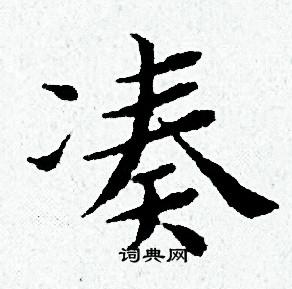 凑
词典网